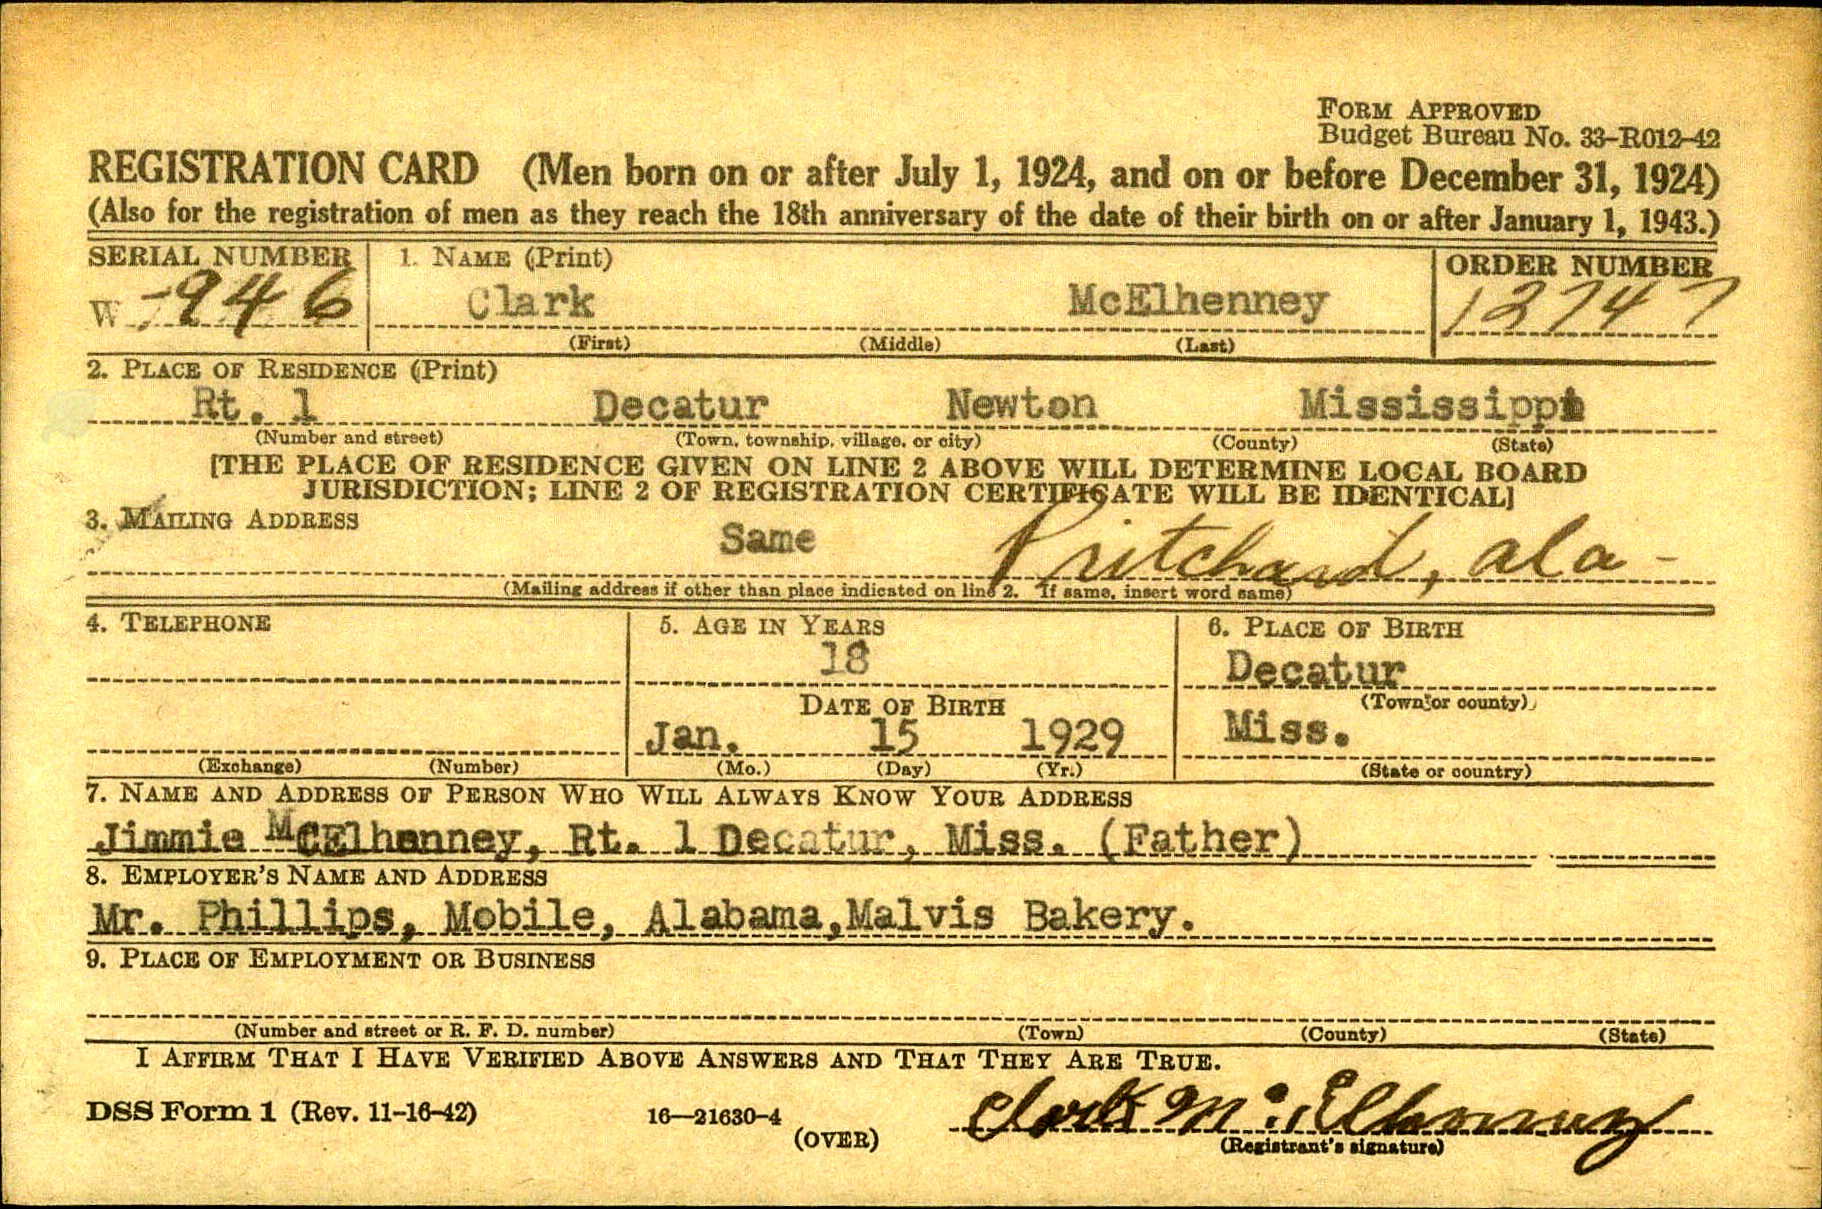 FORM APPROVED
Budget Bureau No. 33-R012-42
REGISTRATION CARD (Men born on or after July 1, 1924, and on or before December 31, 1924)
(Also for the registration of men as they reach the 18th anniversary of the date of their birth on or after January 1, 1943.)
SERIAL NUMBER 1. NAME (Print) ORDER NUMBER
W -946 Clark McElhenney 12747
(First) (Middle) (Last)
2. PLACE OF RESIDENCE (Print)
Rt. 1 Decatur Newton Mississippi
(Number and street) (Town, township, village, or city) (County) (State)
[THE PLACE OF RESIDENCE GIVEN ON LINE 2 ABOVE WILL DETERMINE LOCAL BOARD
JURISDICTION; LINE 2 OF REGISTRATION CERTIFICATE WILL BE IDENTICAL]
3. MAILING ADDRESS
Same Pritchard, ala -
(Mailing address if other than place indicated on line 2. If same, insert word same)
4. TELEPHONE 5. AGE IN YEARS 6. PLACE OF BIRTH
18 Decatur
DATE OF BIRTH (Town or county)
Jan. 15 1929 Miss.
(Exchange) (Number) (Mo.) (Day) (Yr.) (State or country)
7. NAME AND ADDRESS OF PERSON WHO WILL ALWAYS KNOW YOUR ADDRESS
Jimmie McElhenney, Rt. 1 Decatur, Miss. (Father)
8. EMPLOYER'S NAME AND ADDRESS
Mr. Phillips, Mobile, Alabama, Malvis Bakery.
9. PLACE OF EMPLOYMENT OR BUSINESS
(Number and street or R. F. D. number) (Town) (County) (State)
I AFFIRM THAT I HAVE VERIFIED ABOVE ANSWERS AND THAT THEY ARE TRUE.
DSS Form 1 (Rev. 11-16-42) 16—21630-4 Clark McElhenney
(OVER) (Registrant's signature)